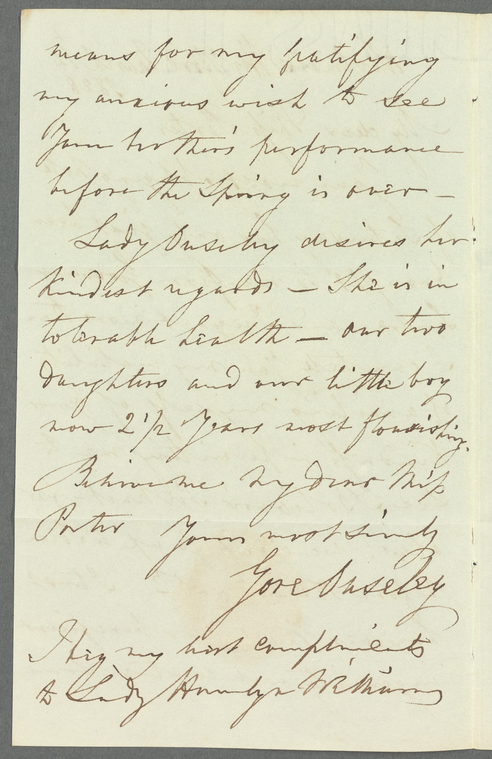 means for my gratifying
my anxious wish to see
Your brother's performance
before the Spring is over —
Lady Ouseley desires her
Kindest regards — She is in
tolerable health — our two
daughters and our little boy
now 2 1/2 Years most flourishing.
Believe me My dear Miss
Porter Yours most sincerely
Gore Ouseley
I beg my best compliments
to Lady Hamlyn Williams